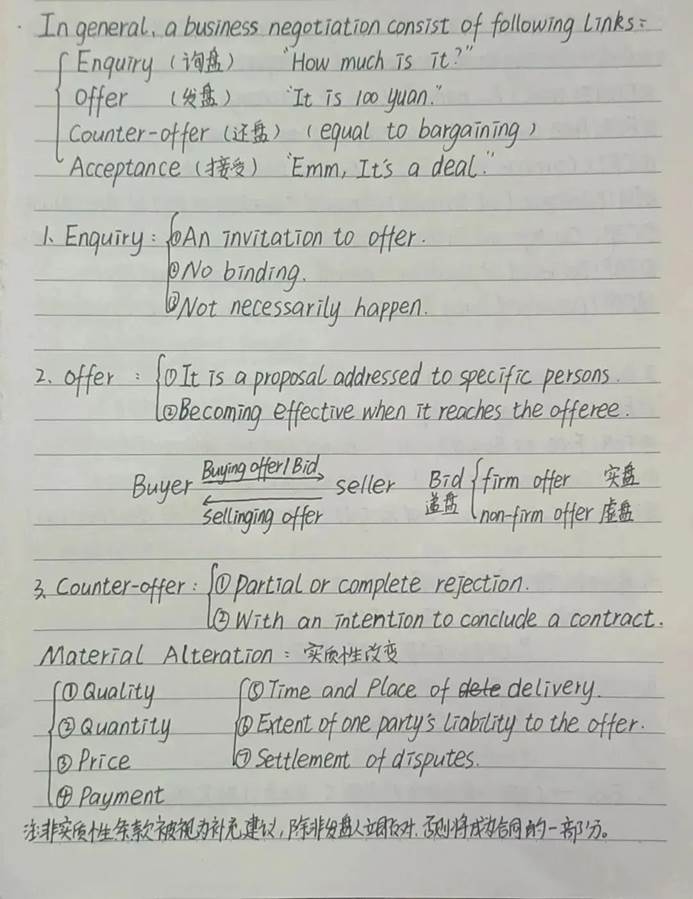 In general, a business negotiation consist of following links:
Enquiry (询盘) "How much is it?"
Offer (发盘) "It is 100 yuan."
Counter-offer (还盘) (equal to bargaining)
Acceptance (接受) "Emm, It's a deal."
1. Enquiry: ①An invitation to offer.
②No binding.
③Not necessarily happen.
2. Offer: ①It is a proposal addressed to specific persons.
②Becoming effective when it reaches the offeree.
Buyer Buying offer/Bid seller Bid firm offer 实盘
sellinging offer 递盘 non-firm offer 虚盘
3. Counter-offer: ①Partial or complete rejection.
②With an intention to conclude a contract.
Material Alteration: 实质性改变
①Quality ⑤Time and Place of dele delivery.
②Quantity ⑥Extent of one party's liability to the offer.
③Price ⑦Settlement of disputes.
④Payment
注:非实质性条款被视为补充建议,除非发盘人立即反对,否则将成为合同的一部分。